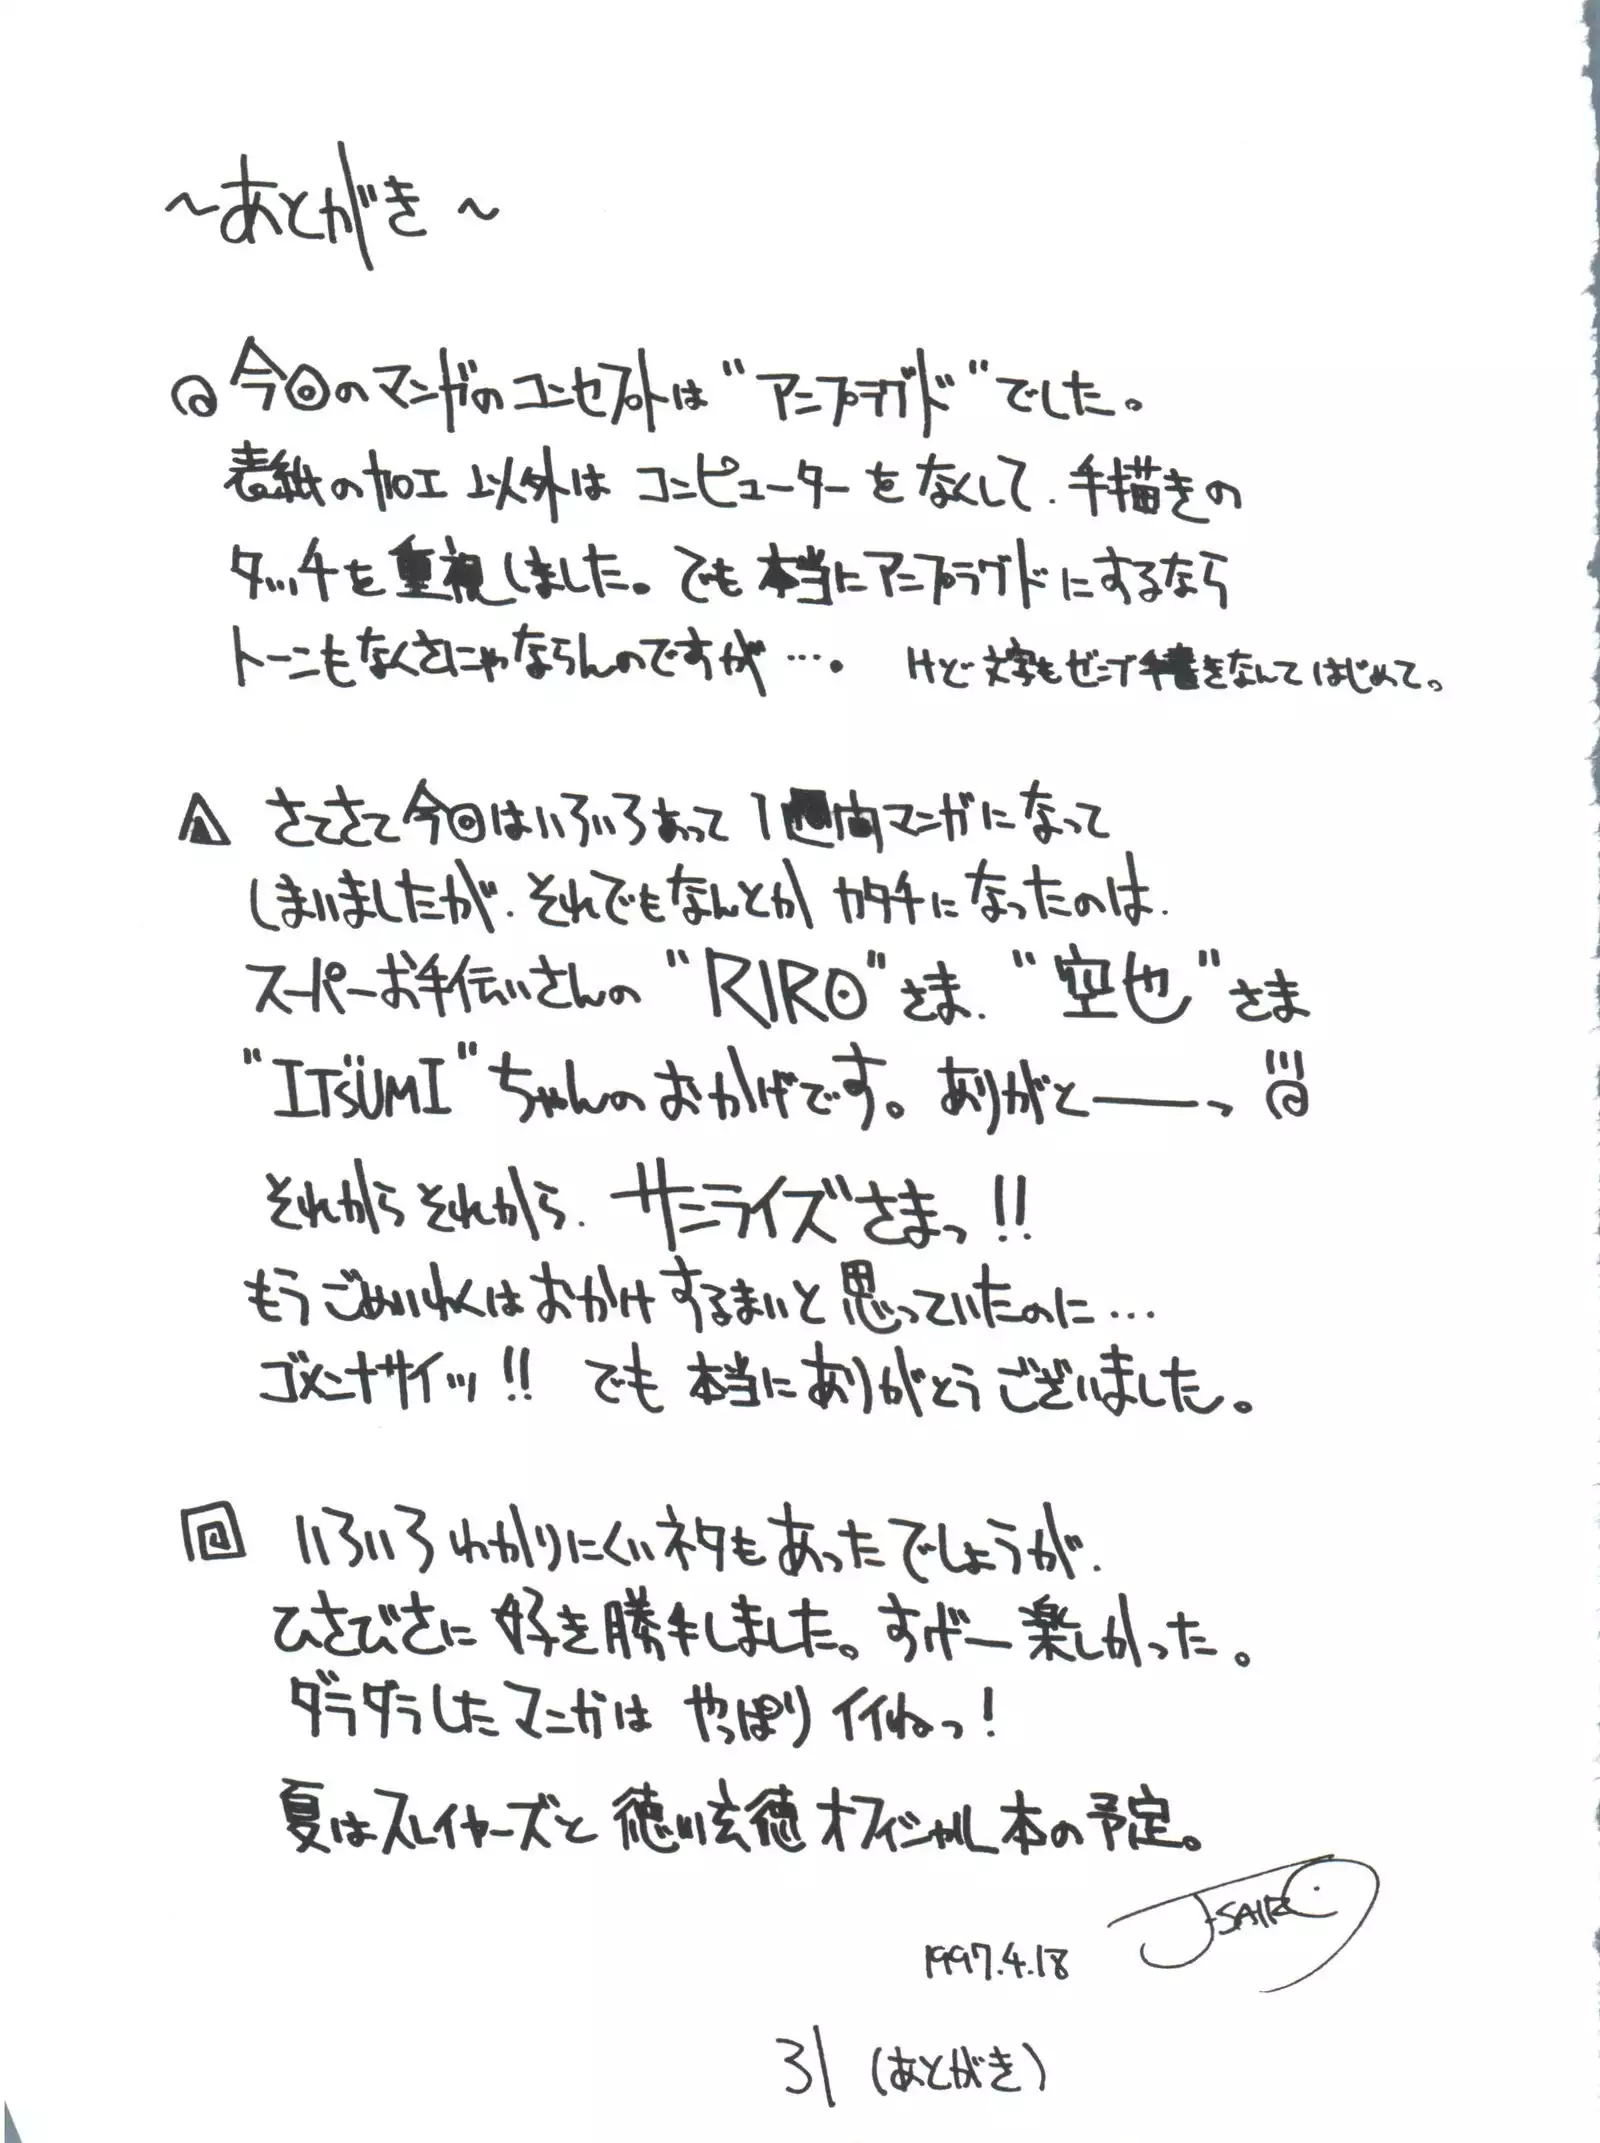 ～あとがき～
今回のマンガのコンセプトは“アンプラグド”でした。
表紙の加工以外はコンピューターをなくして、手描きの
タッチを重視しました。でも本当にアンプラグドにするなら
トーンもなくさにゃならんのですが…。 けど文字もゼンブ手書きなんてはじめて。
さてさて今回はいろいろあって1週間マンガになって
しまいましたが、それでもなんとかカタチになったのは、
スーパーお手伝いさんの“RIRO”さま、“空也”さま
“ITSUMI”ちゃんのおかげです。ありがと――っ
それからそれから、サンライズ“さまっ!!
もうごめいわくはおかけするまいと思っていたのに…
ゴメンナサイッ!! でも本当にありがとうございました。
いろいろわかりにくいネタもあったでしょうが、
ひさびさに好き勝手しました。すげー楽しかった。
ダラダラしたマンガはやっぱりイイねっ!
夏はスレイヤーズと徳川玄徳オフィシャル本の予定。
J-SAIRO
1997.4.18
31 (あとがき)